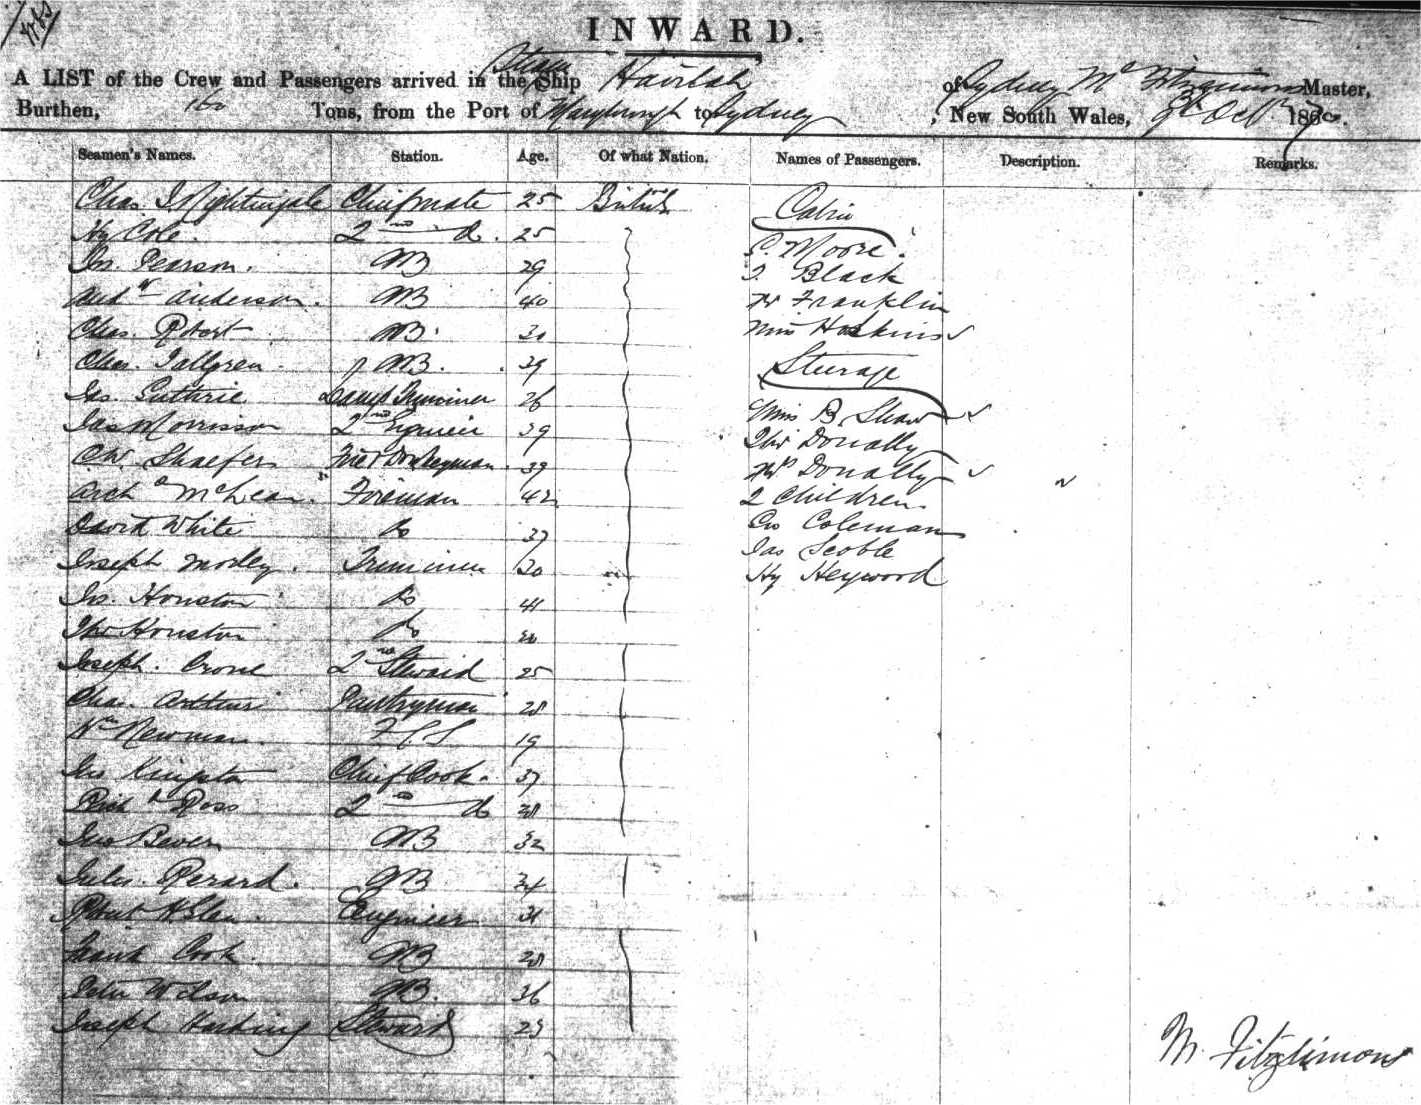 INWARD.
A LIST of the Crew and Passengers arrived in the Steam Ship Havilah of Sydney Mc Fitzsimons Master,
Burthen, 160 Tons, from the Port of Maryborough to Sydney, New South Wales, Oct 187
Seamen's Names. Station. Age. Of what Nation. Names of Passengers. Description. Remarks.
Chas. Nightingale Chief mate 25 British Cabin
Hy Cole. 2nd do. 25 Moore
Jn. Pearson. AB 29 Black
Andw Anderson. AB 40 Mr Franklin
Chas. Robert AB. Miss Hoskins
Chas. Tallgren AB. 29 Steerage
Jas. Guthrie Trimmer 26 Miss B Shaw
Jas Morrison 2nd Engineer 39 Thos Donally
Chr. Shaefer Donkeyman 39 Mrs Donally
Arch McLean Fireman 42 2 Children
David White Do 37 Geo Coleman
Joseph Morley. Trimmer 20 Jas Scoble
Jno. Houston Do 41 Hy Heywood
Thos Houston Do
Joseph. Crone 2nd Steward 25
Chas. Arthur Pantryman 28
Wm Newman. 19
Jno Kingston Chief Cook. 37
Richd Ross 2nd do 38
Jno Bever AB 32
Jules. Perard. AB 34
Robert Glen. Engineer 31
Frank Cook. AB 28
Peter Wilson AB. 36
Joseph Harding Steward 29
M. Fitzsimons